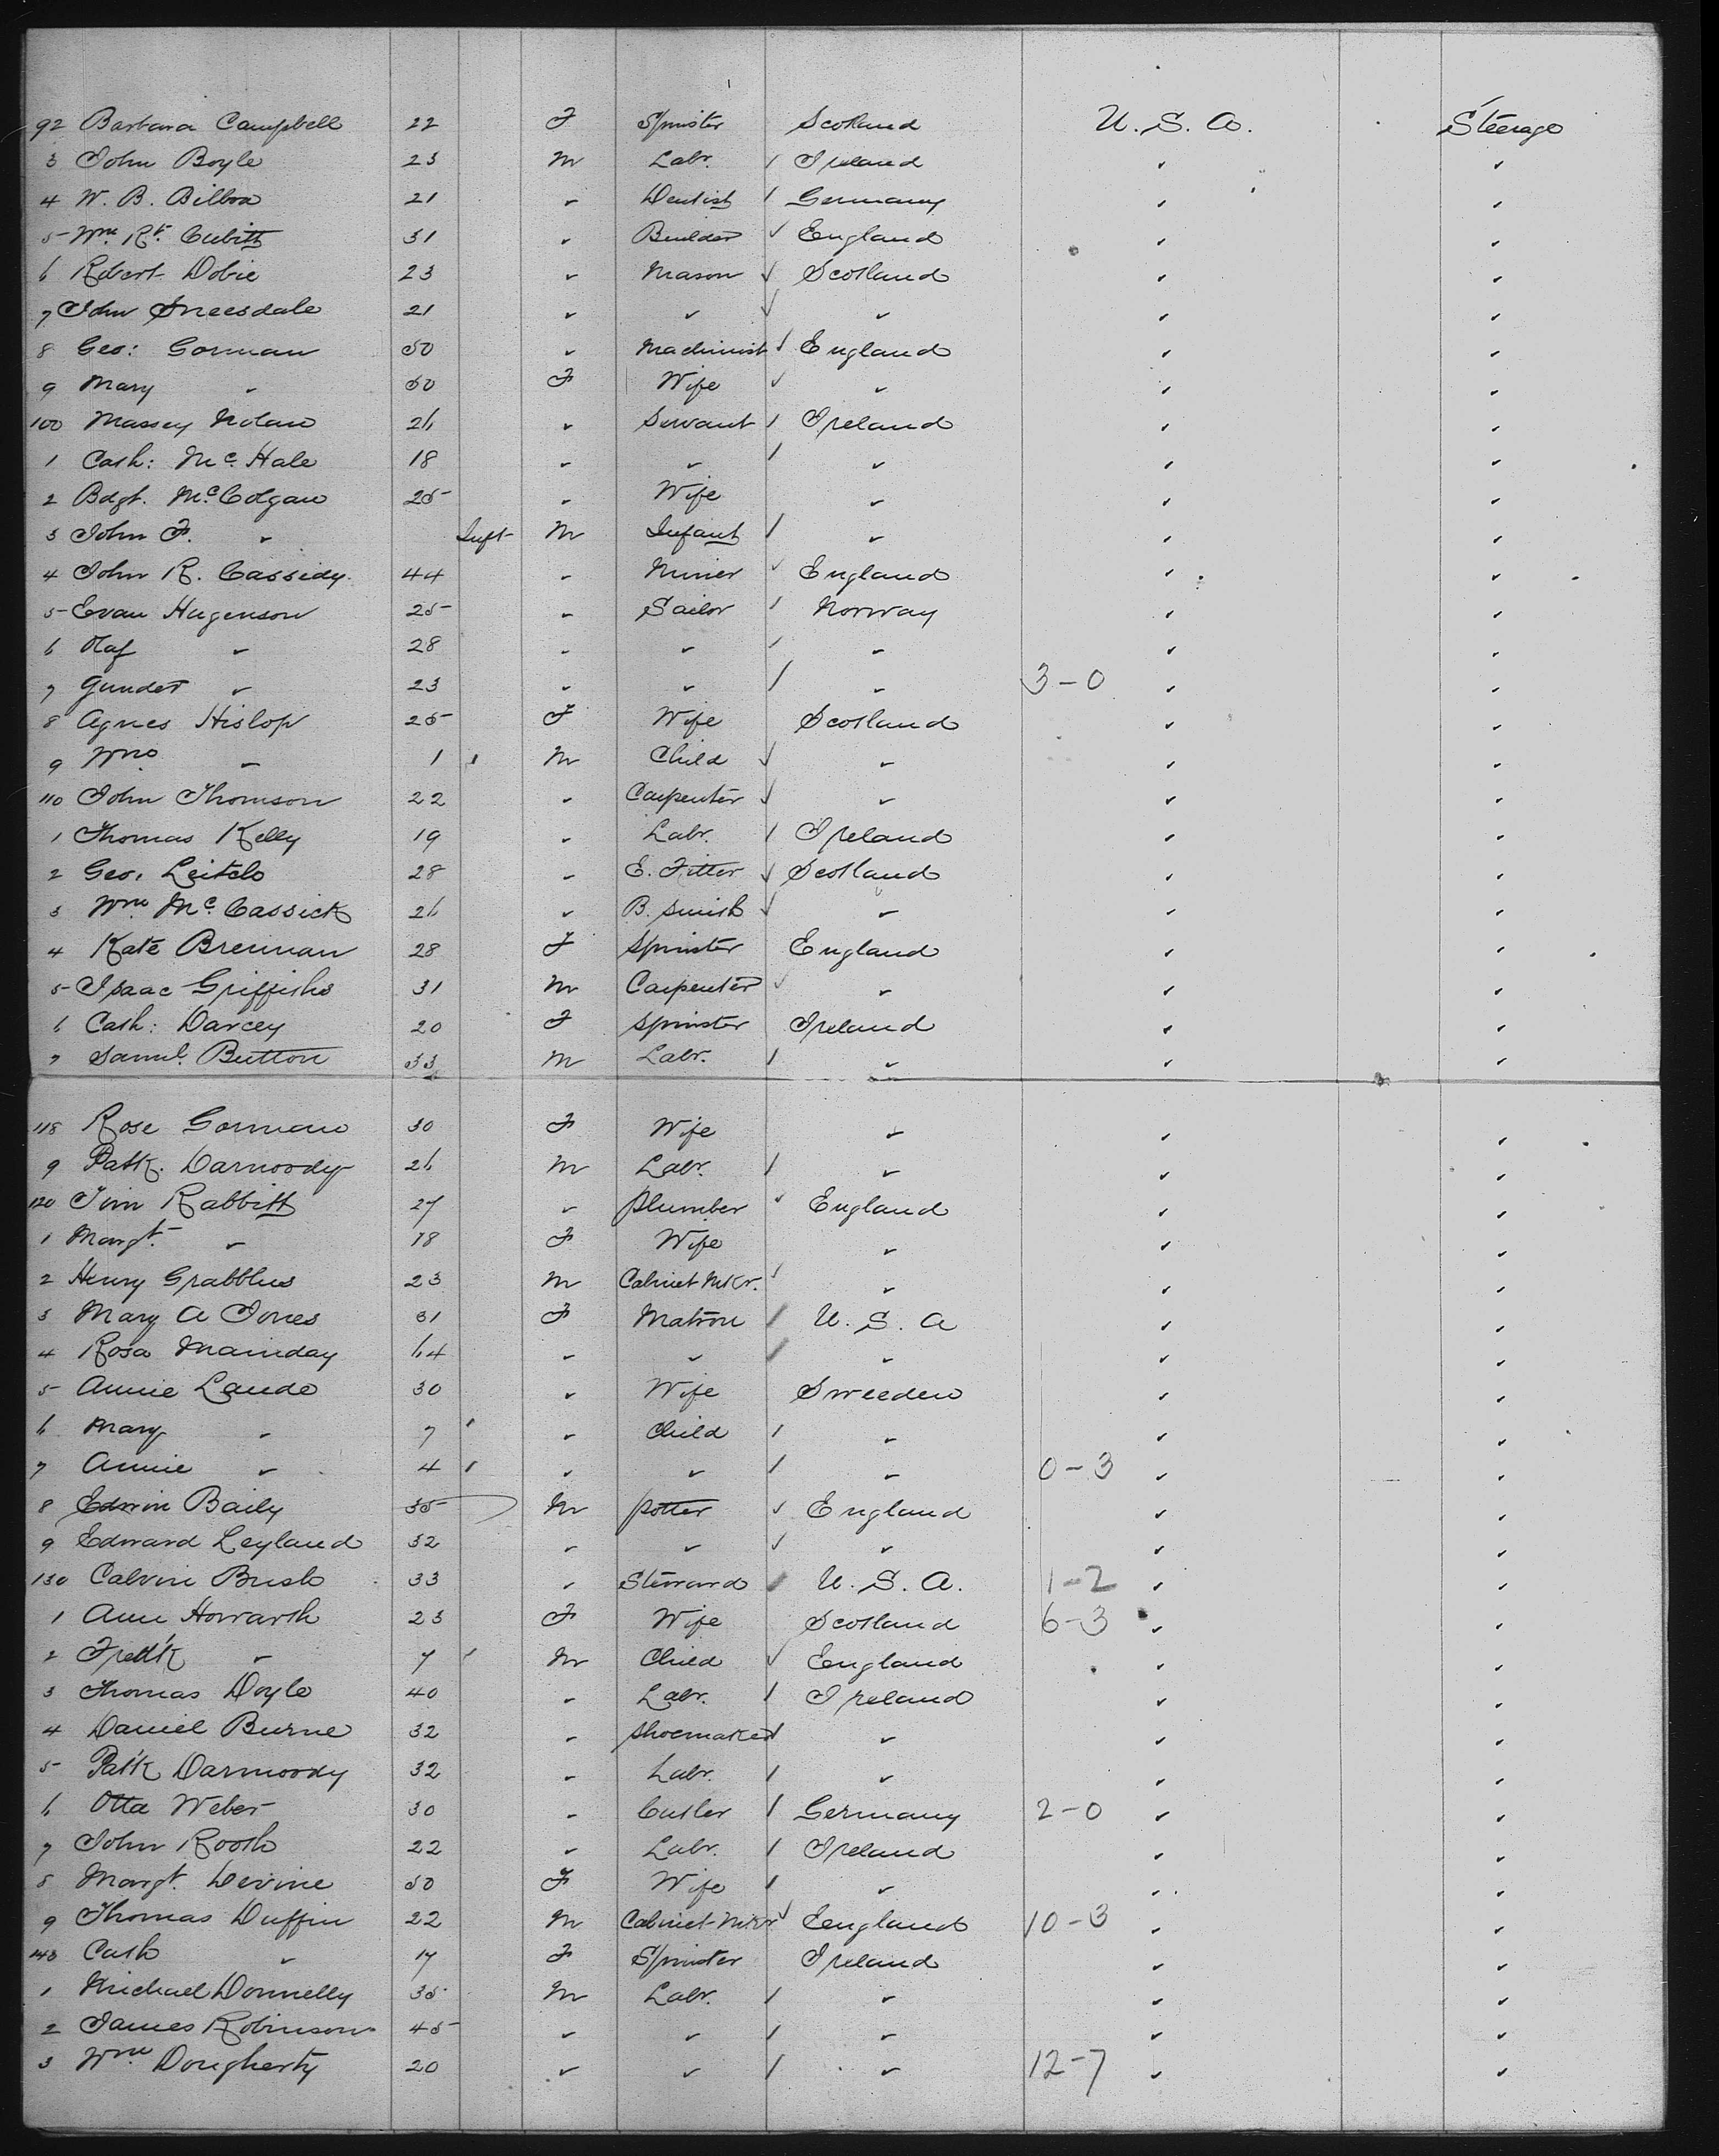 92 Barbara Campbell 22 F Spinster Scotland U. S. A. Steerage
3 John Boyle 23 M Labr. / Ireland " "
4 W. B. Bilboa 21 " Dentist / Germany " "
5 Wm Rt. Cubitt 31 " Builder ✓ England " "
6 Robert Dobie 23 " Mason ✓ Scotland " "
7 John Sneesdale 21 " " ✓ " " "
8 Geo: Gorman 50 " Machinist ✓ England " "
9 Mary " 50 F Wife ✓ " " "
100 Massey Nolan 26 " Servant / Ireland " "
1 Cath: McHale 18 " " / " " "
2 Bdgt. McColgan 25 " Wife " " "
3 John F. " Inft M Infant / " " "
4 John R. Cassidy 44 " Miner ✓ England " "
5 Evan Hugenson 25 " Sailor / Norway " "
6 Olaf " 28 " " / " " "
7 Gunder " 23 " " / " 3-0 " "
8 Agnes Hislop 25 F Wife Scotland " "
9 Wm " 1 M Child ✓ " " "
110 John Thomson 22 " Carpenter ✓ " " "
1 Thomas Kelly 19 " Labr. / Ireland " "
2 Geo. Leitch 28 " E. Fitter ✓ Scotland " "
3 Wm McCassick 26 " B. Smith ✓ " " "
4 Kate Brennan 28 F Spinster England " "
5 Isaac Griffiths 31 M Carpenter ✓ " " "
6 Cath: Darcey 20 F Spinster Ireland " "
7 Saml. Button 33 M Labr. / " " "
118 Rose Gorman 30 F Wife " " "
9 Patk. Darmoody 26 M Labr. / " " "
120 Tim Rabbitt 27 " Plumber ✓ England " "
1 Margt. " 18 F Wife " " "
2 Henry 23 M Cabinet Mkr. ✓ " " "
3 Mary A Jones 31 F Matron / U. S. A " "
4 Rosa Mainday 64 " " / " " "
5 Annie Laude 30 " Wife Sweeden " "
6 Mary " 7 " Child / " " "
7 Annie " 4 " " / " 0-3 " "
8 Edwin Baily 35 M Potter ✓ England " "
9 Edward Leyland 32 " " ✓ " " "
130 Calvin Bush 33 " Steward / U. S. A. 1-2 " "
1 Ann Howarth 23 F Wife Scotland 6-3 " "
2 Fredk " 7 M Child ✓ England " "
3 Thomas Doyle 40 " Labr. / Ireland " "
4 Daniel Burne 32 " Shoemaker / " " "
5 Patk Darmoody 32 " Labr. / " " "
6 Otta Weber 30 " Cutler / Germany 2-0 " "
7 John Rooth 22 " Labr. / Ireland " "
8 Margt. Devine 50 F Wife / " " "
9 Thomas Duffin 22 M Cabinet-Mkr ✓ England 10-3 " "
140 Cath " 17 F Spinster Ireland " "
1 Michael Donnelly 35 M Labr. / " " "
2 James Robinson 45 " " / " " "
3 Wm Dougherty 20 " " / " 12-7 " "